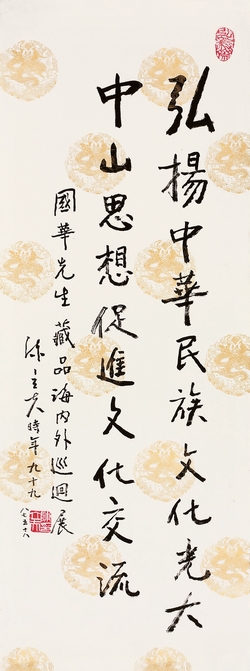 弘揚中華民族文化光大
中山思想促進文化交流
國華先生藏品海內外巡迴展
陳立夫時年九十九
八七、五、十八